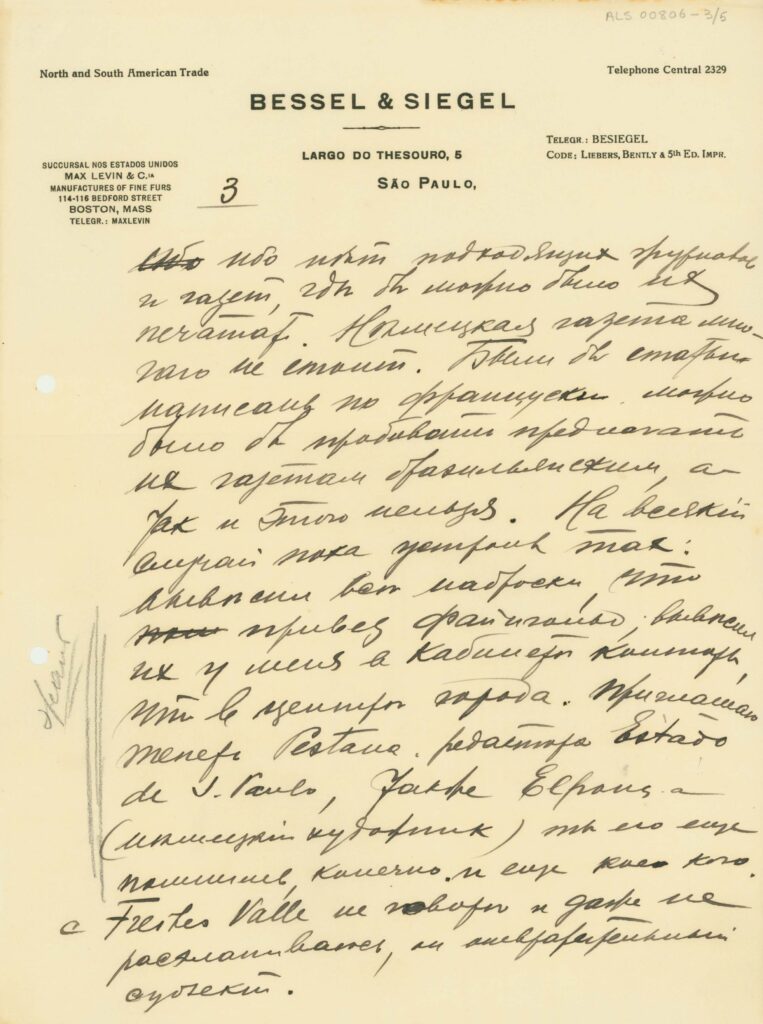 ALS 00806-3/5
North and South American Trade
Telephone Central 2329
BESSEL & SIEGEL
LARGO DO THESOURO, 5
SÃO PAULO,
TELEGR.: BESIEGEL
CODE: LIEBERS, BENTLY & 5th ED. IMPR.
SUCCURSAL NOS ESTADOS UNIDOS
MAX LEVIN & C.IA
MANUFACTURES OF FINE FURS
114-116 BEDFORD STREET
BOSTON, MASS
TELEGR.: MAXLEVIN
3
ибо нѣт подходящих журналов
и газет, гдѣ бы можно было их
печатат. Нѣмецкая газета мно-
гаго не стоит. Были бы статьи
написаны по французски можно
было бы пробовать предлагать
их газетам бразильянским, а
так и этого нельзя. На всякий
случай пока устроив так:
вывѣсил всѣ наброски, что
привез вывѣсил
их у меня в кабинетѣ конторы,
что в центрѣ города. Приглашаю
теперь Pestana редактора Estado
de S. Paulo, также Elpons а
(нѣмецкий художник) ты его еще
помнишь, конечно и еще кое кого.
С Freitas Valle не говорю и даже не
раскланиваюсь, он отвратительный
субъект.